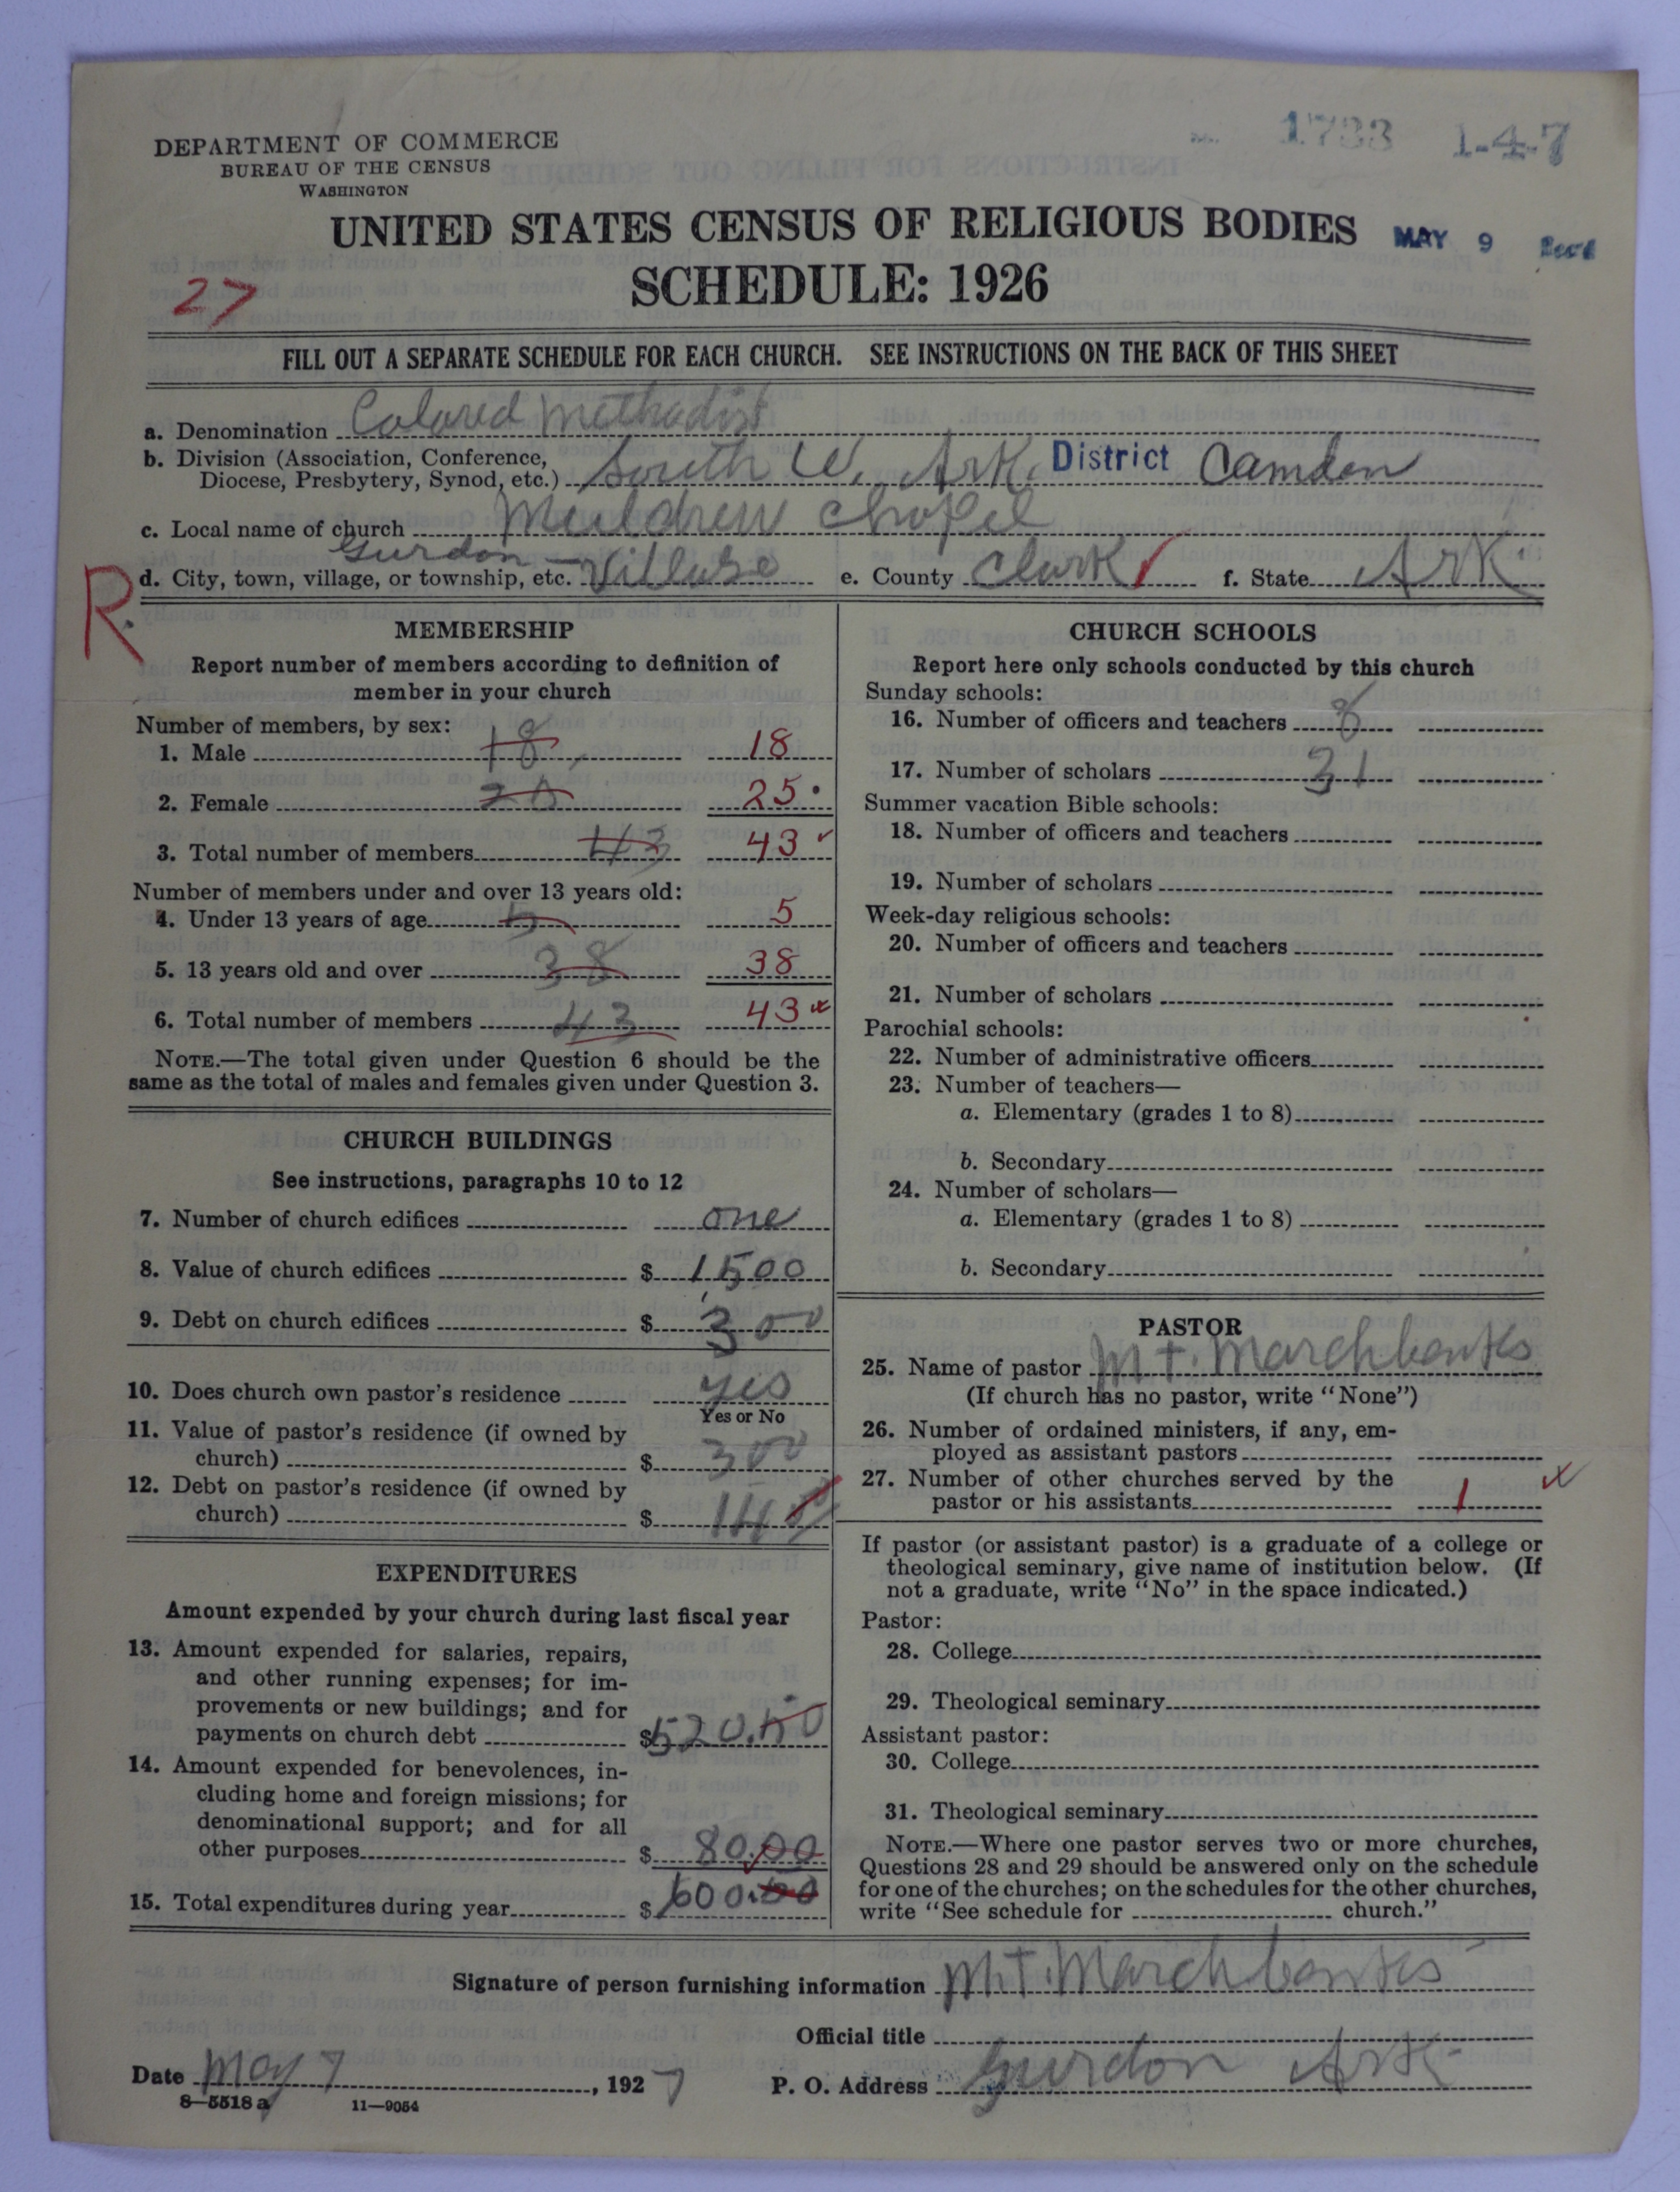 1783 1-4-7
DEPARTMENT OF COMMERCE
BUREAU OF THE CENSUS
WASHINGTON
UNITED STATES CENSUS OF RELIGIOUS BODIES
MAY 9
SCHEDULE: 1926
27
FILL OUT A SEPARATE SCHEDULE FOR EACH CHURCH. SEE INSTRUCTIONS ON THE BACK OF THIS SHEET
a. Denomination Colored Methodist
b. Division (Association, Conference,
Diocese, Presbytery, Synod, etc.) South W. Ark. District Camden
c. Local name of church Muldrew Chapel
Gurdon —
d. City, town, village, or township, etc. Village e. County Clark f. State Ark.
R.
MEMBERSHIP
Report number of members according to definition of
member in your church
Number of members, by sex:
1. Male 18 18
2. Female 25 25
3. Total number of members 43 43
Number of members under and over 13 years old:
4. Under 13 years of age 5 5
5. 13 years old and over 38 38
6. Total number of members 43 43
NOTE.—The total given under Question 6 should be the
same as the total of males and females given under Question 3.
CHURCH BUILDINGS
See instructions, paragraphs 10 to 12
7. Number of church edifices one
8. Value of church edifices $ 1,500
9. Debt on church edifices $ 300
10. Does church own pastor's residence yes
Yes or No
11. Value of pastor's residence (if owned by
church) $ 300
12. Debt on pastor's residence (if owned by
church) $
EXPENDITURES
Amount expended by your church during last fiscal year
13. Amount expended for salaries, repairs,
and other running expenses; for im-
provements or new buildings; and for
payments on church debt $ 520.50
14. Amount expended for benevolences, in-
cluding home and foreign missions; for
denominational support; and for all
other purposes $ 80.00
15. Total expenditures during year $ 600.50
CHURCH SCHOOLS
Report here only schools conducted by this church
Sunday schools:
16. Number of officers and teachers 8
17. Number of scholars 31
Summer vacation Bible schools:
18. Number of officers and teachers
19. Number of scholars
Week-day religious schools:
20. Number of officers and teachers
21. Number of scholars
Parochial schools:
22. Number of administrative officers
23. Number of teachers—
a. Elementary (grades 1 to 8)
b. Secondary
24. Number of scholars—
a. Elementary (grades 1 to 8)
b. Secondary
PASTOR
25. Name of pastor M. T. Marchbanks
(If church has no pastor, write "None")
26. Number of ordained ministers, if any, em-
ployed as assistant pastors
27. Number of other churches served by the
pastor or his assistants 1
If pastor (or assistant pastor) is a graduate of a college or
theological seminary, give name of institution below. (If
not a graduate, write "No" in the space indicated.)
Pastor:
28. College
29. Theological seminary
Assistant pastor:
30. College
31. Theological seminary
NOTE.—Where one pastor serves two or more churches,
Questions 28 and 29 should be answered only on the schedule
for one of the churches; on the schedules for the other churches,
write "See schedule for church."
Signature of person furnishing information M. T. Marchbanks
Official title
Date May 7, 1927 P. O. Address Gurdon Ark.
8—5518 a 11—9054